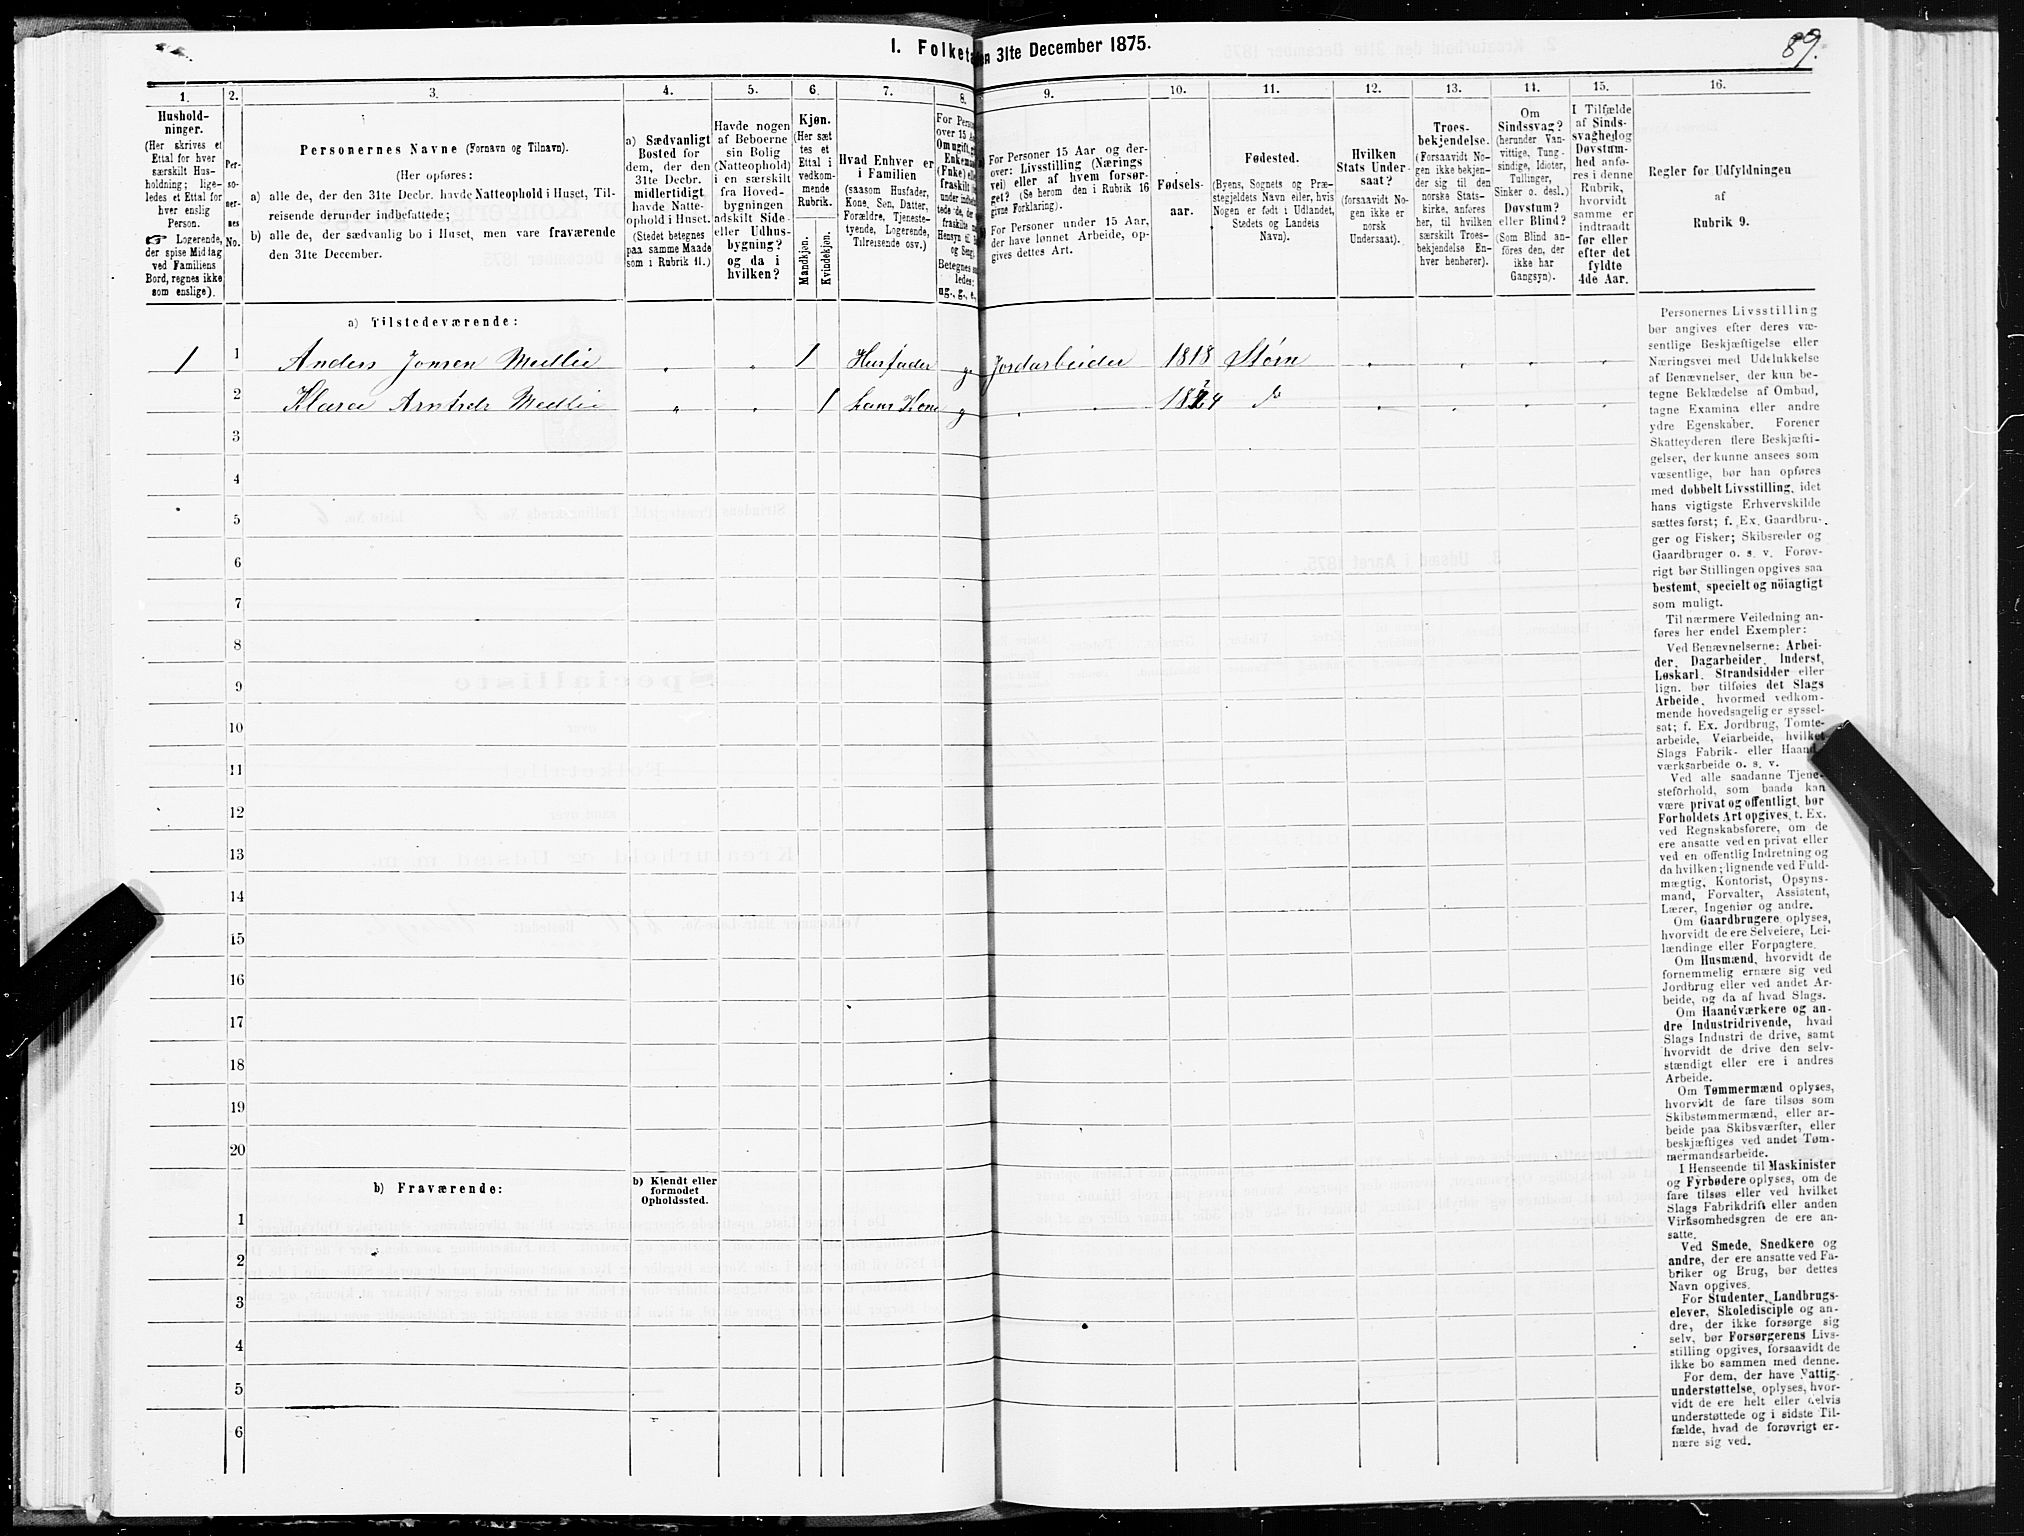 I. Folketa
en 31te December 1875.
89.
1.
2.
3.
4.
5.
6.
7.
8.
9.
10.
11.
12.
13.
14.
15.
16.
Hushold-
ninger.
(Her skrives et
Ettal for hver
særskilt Hus-
holdning; lige-
ledes et Ettal for
hver enslig
Person.
☞ Logerende,
der spise Middag
ved Familiens
Bord, regnes ikke
som enslige).
Per-
so-
ner-
nes
No.
Personernes Navne (Fornavn og Tilnavn).
(Her opføres:
a) alle de, der den 31te Decbr. havde Natteophold i Huset, Til-
reisende derunder indbefattede;
b) alle de, der sædvanlig bo i Huset, men vare fraværende
den 31te December.
a) Sædvanligt
Bosted for
dem, der den
31te Decbr.
midlertidigt
havde Natte-
ophold i Huset.
(Stedet betegnes
paa samme Maade
som i Rubrik 11.)
Havde nogen
af Beboerne
sin Bolig
(Natteophold)
i en særskilt
fra Hoved-
bygningen
adskilt Side-
eller Udhus-
bygning?
og da i
hvilken?
Kjøn.
(Her sæt
tes et
Ettal i
vedkom-
mende
Rubrik.
Mandkjøn.
Kvindekjøn.
Hvad Enhver er
i Familien
(saasom Husfader,
Kone, Søn, Datter,
Forældre, Tjeneste-
tyende, Logerende,
Tilreisende osv.)
Betegnes saa
ledes:
ug., g., e.,
For Personer 15 Aar og der-
over: Livsstilling (Nærings
vei) eller af hvem forsør-
get? (Se herom den i Rubrik 16
givne Forklaring).
For Personer under 15 Aar,
der have lønnet Arbeide, op-
gives dettes Art.
Fødsels-
aar.
Fødested.
(Byens, Sognets og Præ-
stegjeldets Navn eller, hvis
Nogen er født i Udlandet,
Stedets og Landets
Navn).
Hvilken
Stats Under-
saat?
(forsaavidt No-
gen ikke er
norsk
Undersaat).
Troes-
bekjendelse.
(Forsaavidt No-
gen ikke bekjen-
der sig til den
norske Stats-
kirke, anføres
her, til hvilken
særskilt Troes-
bekjendelse En-
hver henhører).
Om
Sindssvag?
(herunder Van-
vittige, Tung-
sindige, Idioter,
Tullinger,
Sinker o. desl.)
Døvstum?
eller Blind?
(Som Blind an-
føres den, der
ikke har
Gangsyn).
I Tilfælde
af Sinds-
svaghed og
Døvstum-
hed anfø-
res i denne
Rubrik,
hvorvidt
samme er
indtraadt
før eller
efter det
fyldte
4de Aar.
Regler for Udfyldningen
af
Rubrik 9.
a) Tilstedeværende:
1 1 Anders Jonsen Medlie „ „ 1 Husfader g. Jordarbeider 1818 Størn „ „ „ „
2 „ „ 1 hans Kone g „ „ 1824 do „ „ „ „
3
4
5
6
7
8
9
10
11
12
13
14
15
16
17
18
19
20
b) Fraværende:
b) Kjendt eller
formodet
Opholdssted.
1
2
3
4
5
6
Personernes Livsstilling
bør angives efter deres væ-
sentlige Beskjæftigelse eller
Næringsvei med Udelukkelse
af Benævnelser, der kun be-
tegne Beklædelse af Ombud,
tagne Examina eller andre
ydre Egenskaber. Forener
Skatteyderen flere Beskjæfti-
gelser, der kunne ansees som
væsentlige, bør han opføres
med dobbelt Livsstilling, idet
hans vigtigste Erhvervskilde
sættes først; f. Ex. Gaardbru-
ger og Fisker; Skibsreder og
Gaardbruger o. s. v. Forøv-
rigt bør Stillingen opgives saa
bestemt, specielt og nöiagtigt
som muligt.
Til nærmere Veiledning an-
føres her endel Exempler:
Ved Benævnelserne: Arbei-
der, Dagarbeider, Inderst,
Løskarl, Strandsidder eller
lign. bør tilføies det Slags
Arbeide, hvormed vedkom-
mende hovedsagelig er syssel-
sat; f. Ex. Jordbrug, Tomte-
arbeide, Veiarbeide, hvilket
Slags Fabrik- eller Haand-
værksarbeide o. s. v.
Ved alle saadanne Tjene-
steforhold, som baade kan
være privat og offentligt, bør
Forholdets Art opgives, t. Ex.
ved Regnskabsførere, om de
ere ansatte ved en privat eller
ved en offentlig Indretning og
da hvilken; lignende ved Fuld-
mægtig, Kontorist, Opsyns-
mand, Forvalter, Assistent,
Lærer, Ingeniør og andre.
Om Gaardbrugere oplyses,
hvorvidt de ere Selveiere, Lei-
lændinge eller Forpagtere.
Om Husmænd, hvorvidt de
fornemmelig ernære sig ved
Jordbrug eller ved andet Ar-
beide, og da af hvad Slags.
Om Haandværkere og an-
dre Industridrivende, hvad
Slags Industri de drive, samt
hvorvidt de drive den selv-
stændigt eller ere i andres
Arbeide.
Om Tømmermænd oplyses,
hvorvidt de fare tilsøs som
Skibstømmermænd, eller ar-
beide paa Skibsværfter, eller
beskjæftiges ved andet Tøm-
mermandsarbeide.
I Henseende til Maskinister
og Fyrbødere oplyses, om de
fare tilsøs eller ved hvilket
Slags Fabrikdrift eller anden
Virksomhedsgren de ere an-
satte.
Ved Smede, Snedkere og
andre, der ere ansatte ved Fa-
briker og Brug, bør dettes
Navn opgives.
For Studenter, Landbrugs-
elever, Skoledisciple og an-
dre, der ikke forsørge sig
selv, bør Forsørgerens Livs-
stilling opgives, forsaavidt de
ikke bo sammen med denne.
For dem, der have Fattig-
understøttelse, oplyses, hvor-
vidt de ere helt eller delvis
understøttede og i sidste Til-
fælde, hvad de forøvrigt er-
nære sig ved.